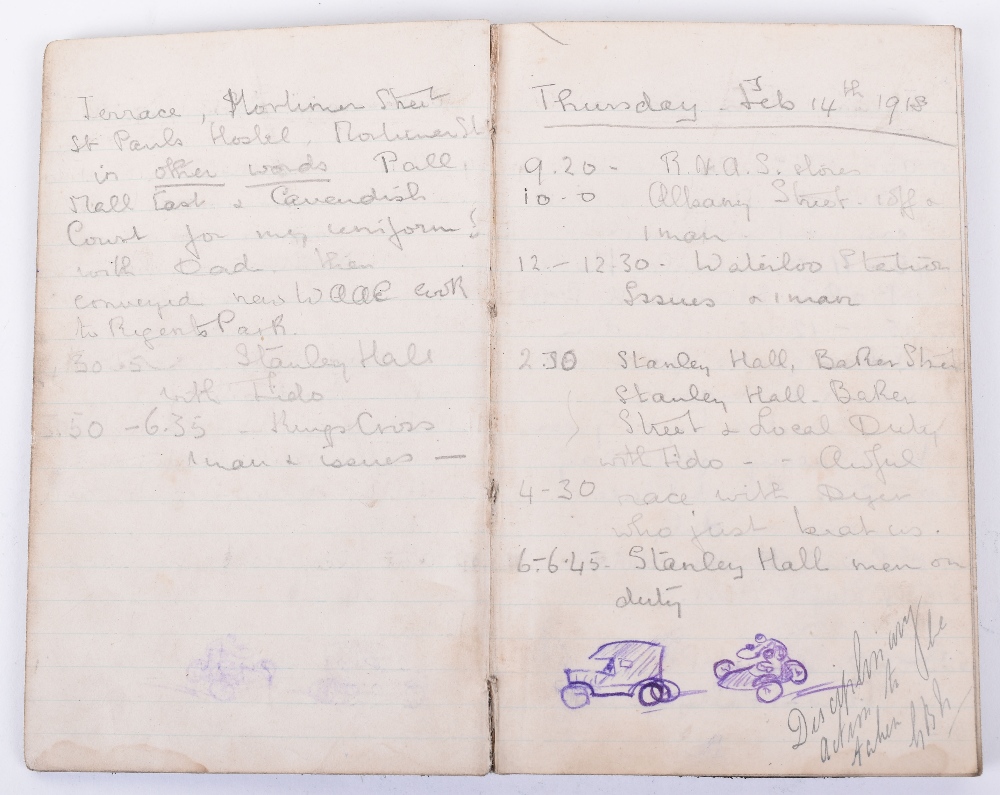 Terrace, Mortimer Street
St Pauls Hostel, Mortimer St
in other words Pall,
Mall East & Cavendish
Court for my uniform
with Dad. then
conveyed new WAAC cook
to Regents Park.
30.5 Stanley Hall
with Fido
.50 - 6.35 - Kings Cross
1 man & issues -
Thursday - Feb 14th 1918
9.20 - R.A.S. stores
10-0 Albany Street.
1 man.
12. - 12.30 - Waterloo Station
Issues & 1 man
2.30 Stanley Hall, Baker Street
Stanley Hall. Baker
Street & Local Duty
with Fido - - Awful
4-30 race with Dyer
who just beat us.
6-6.45- Stanley Hall men on
duty
Disciplinary
action to be
taken